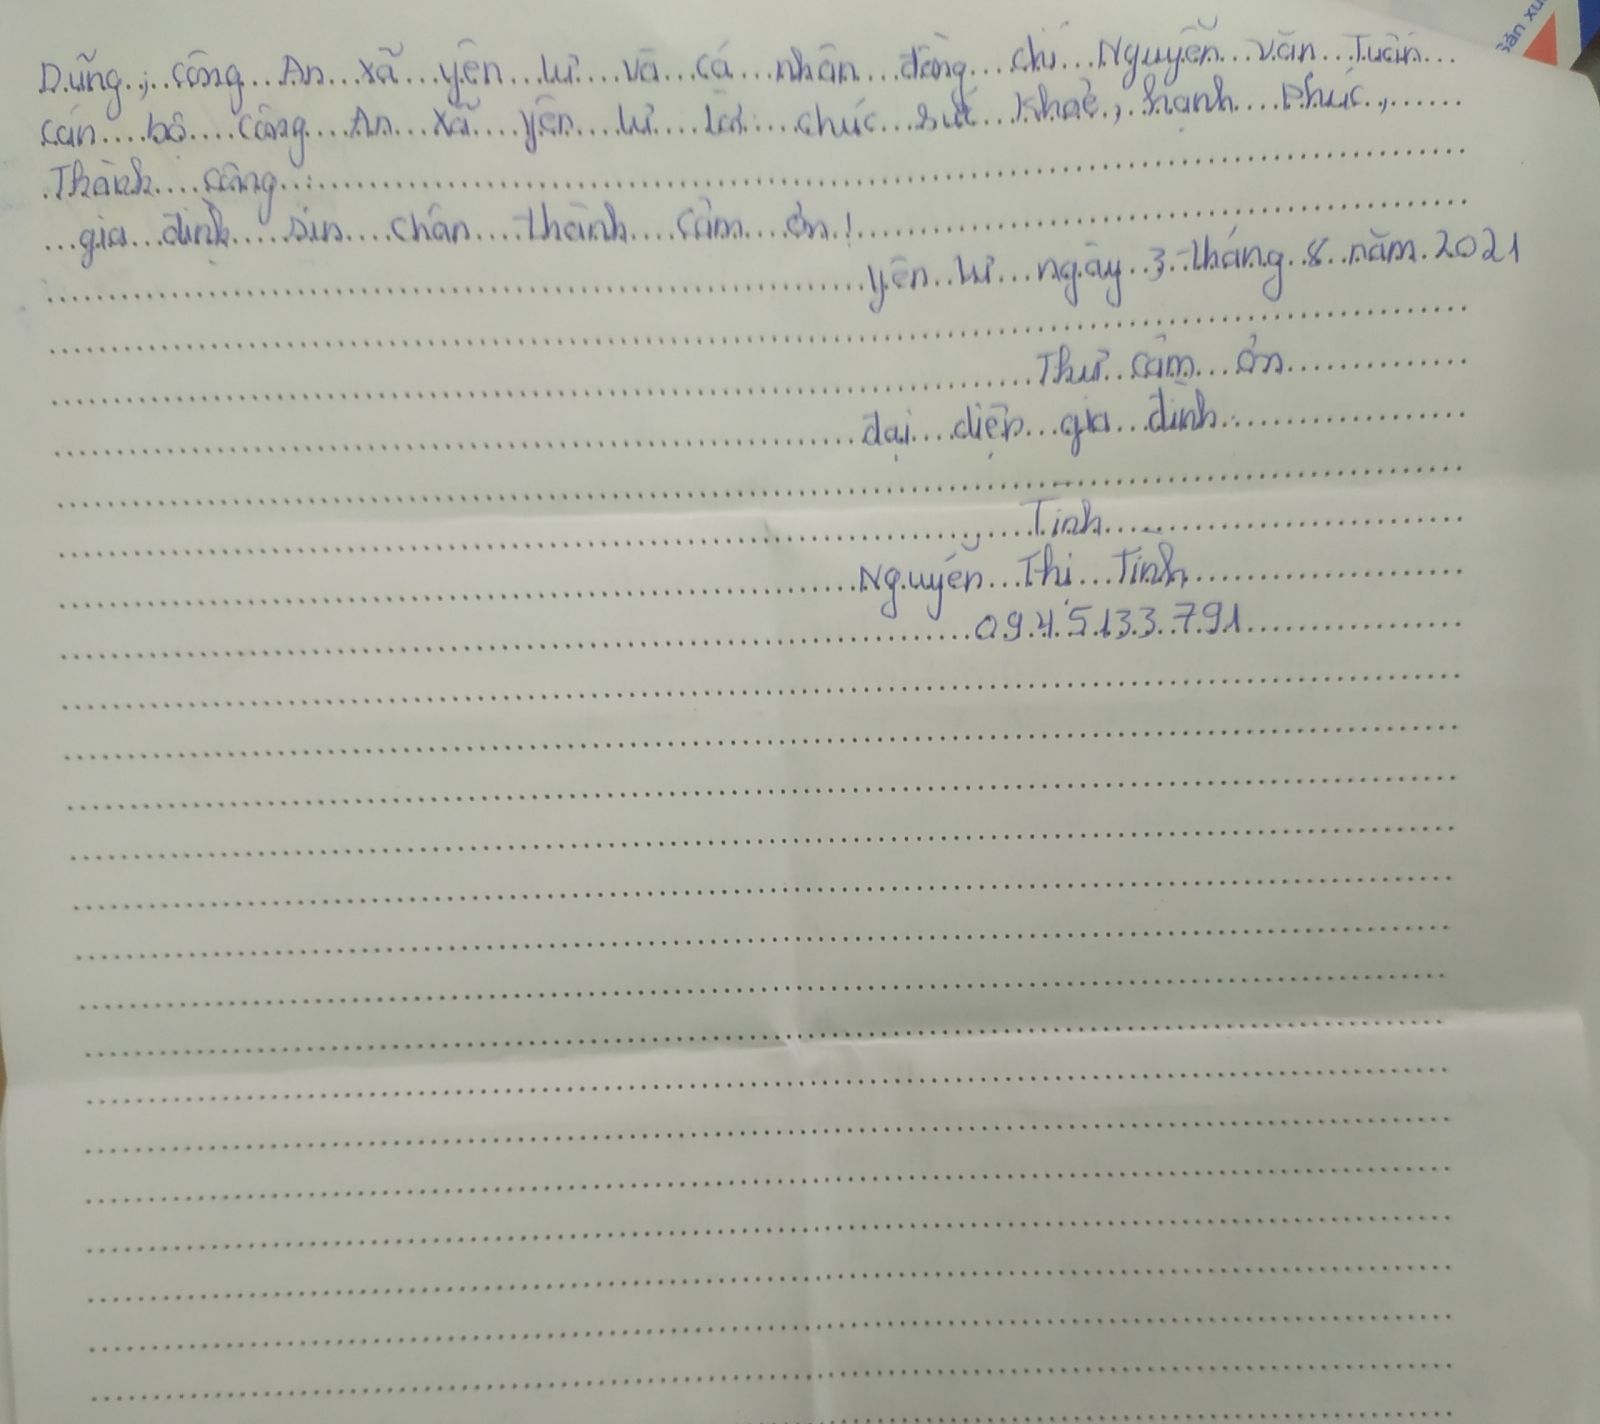 Dũng, công An xã yên lư và cá nhân đồng chí Nguyễn văn Tuấn
cán bộ công An xã yên lư lời chúc sức khoẻ, hạnh Phúc,
Thành công.
gia đình sin chân thành cảm ơn!
yên lư ngày 3 tháng 8 năm 2021
Thư cảm ơn
đại diện gia đình
Tình
Nguyễn Thị Tình
0945133791
sản xu